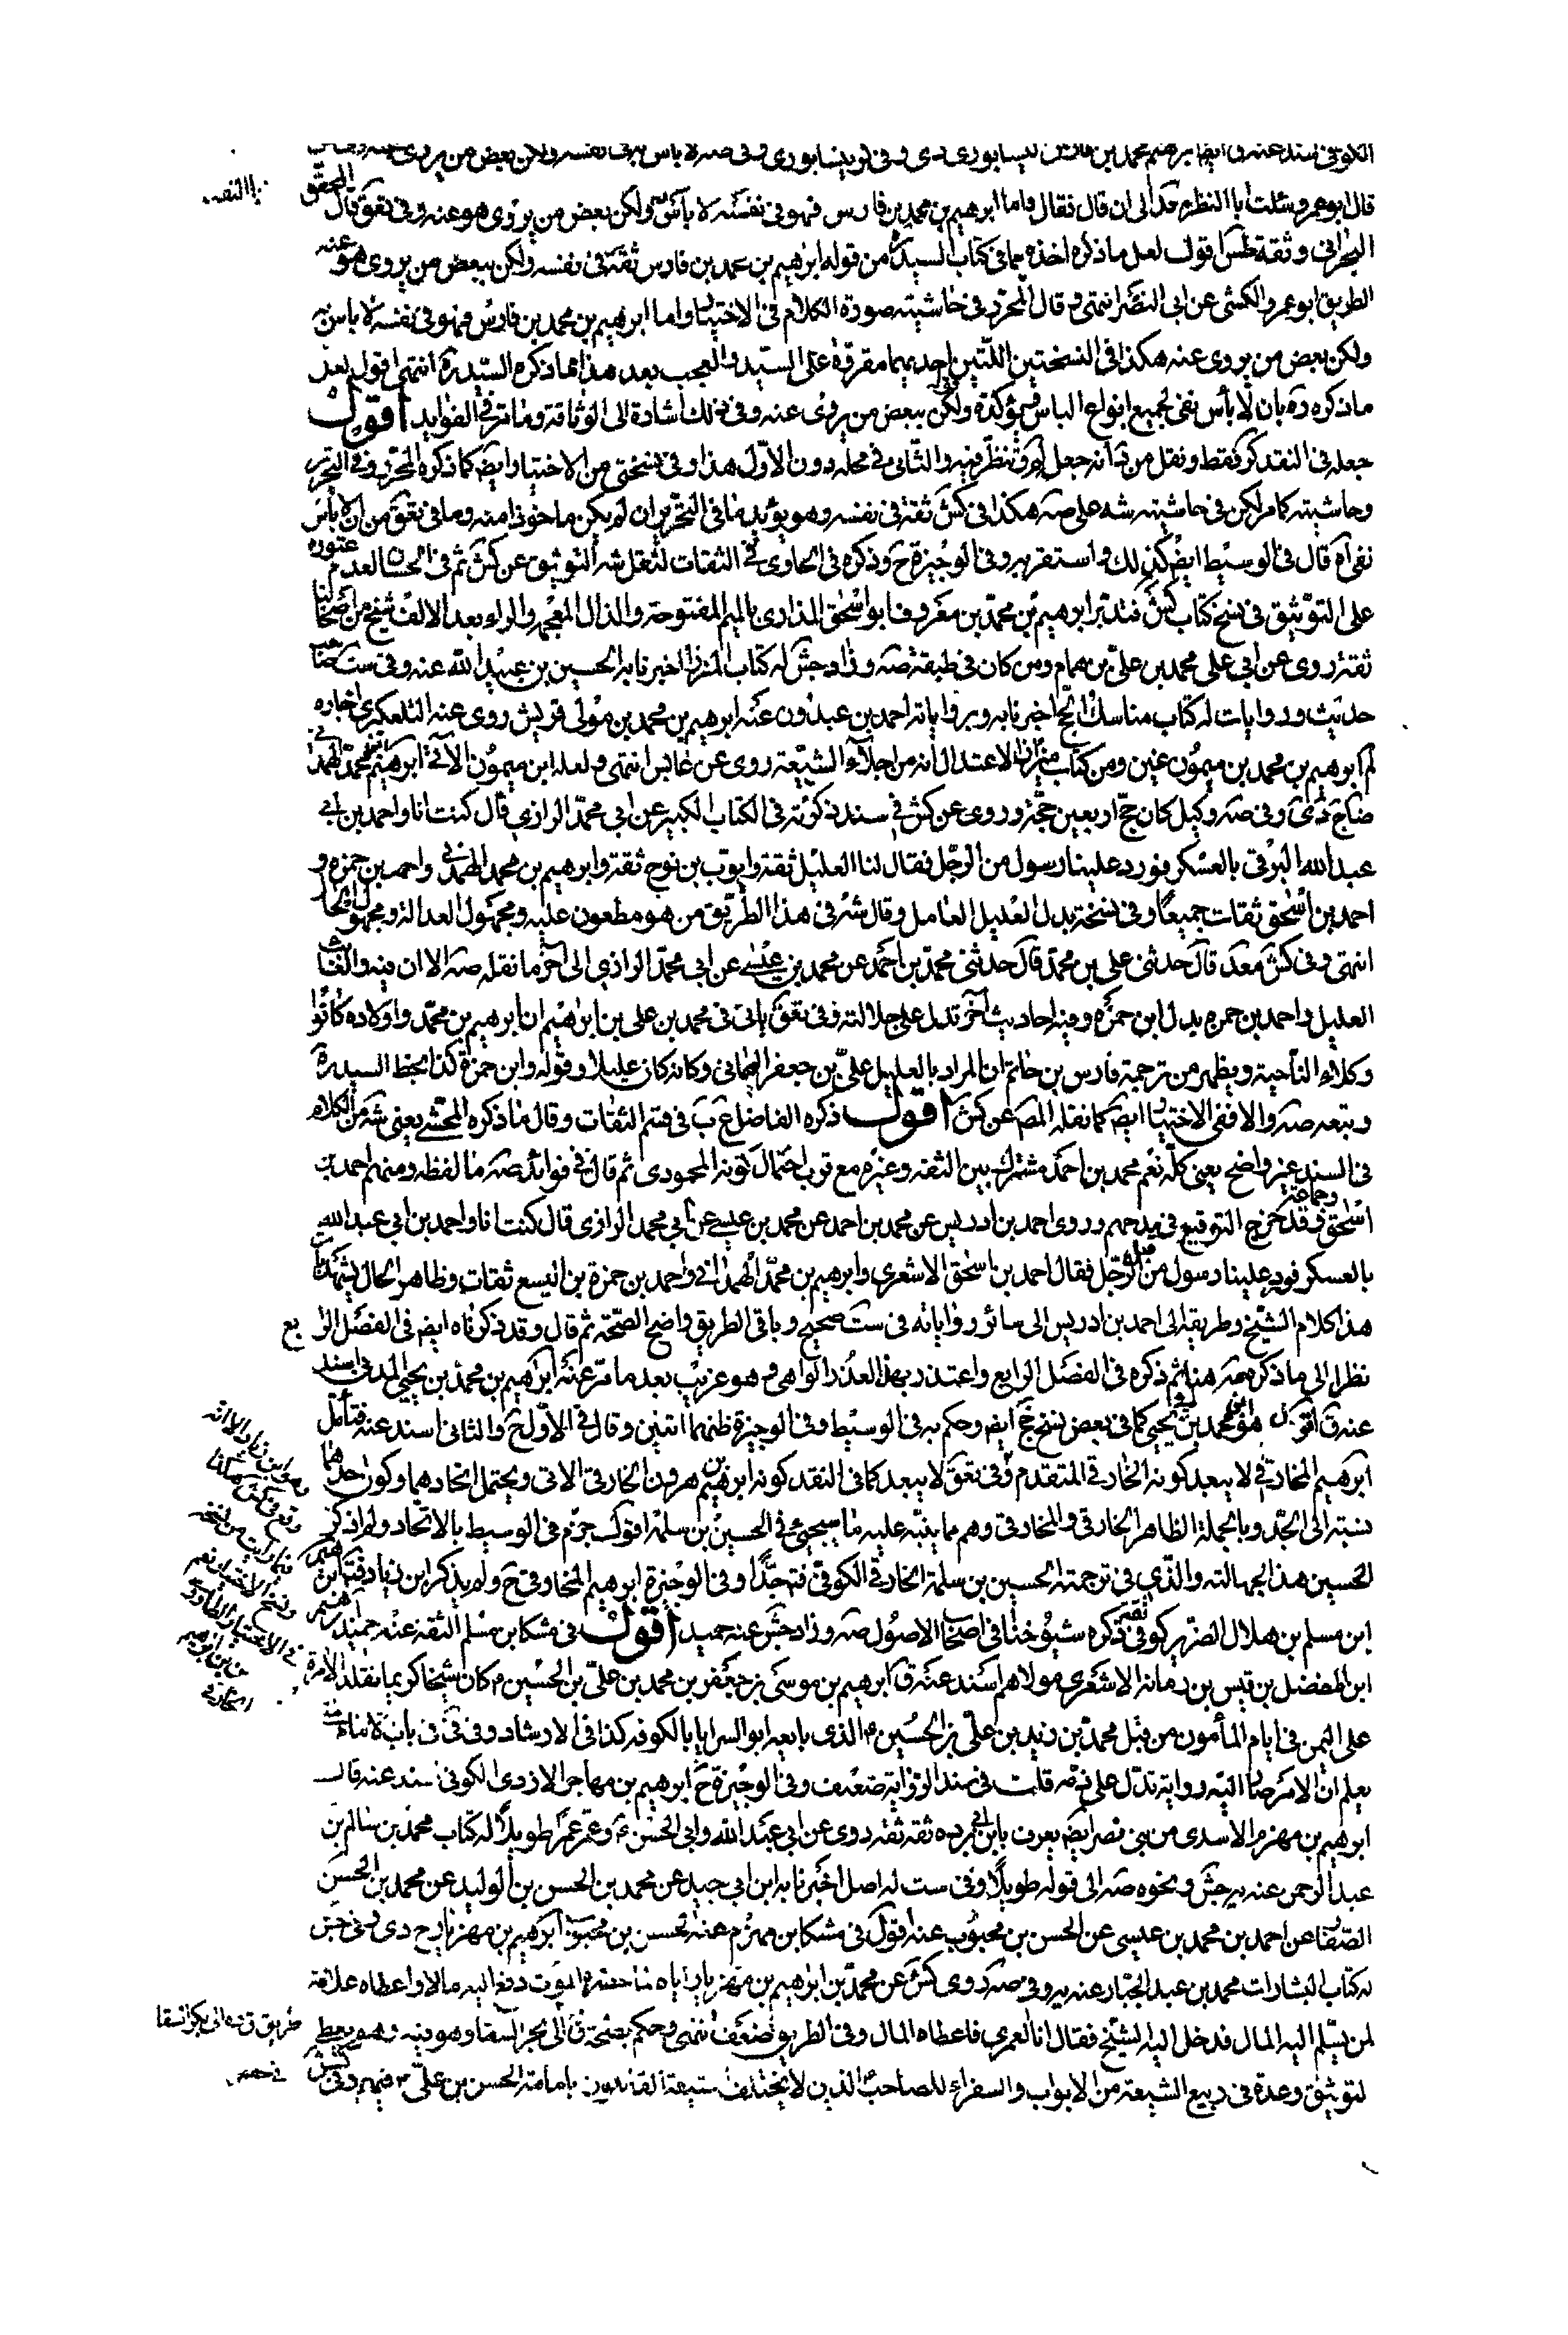 الكوفي اسند عنه ق ابرهيم بن محمد بن فارس نيسابوري دي وفي كر نيسابوري وفي صه لا باس به في نفسه ولكن بعض من يروي عنه
قال ابو عمرو سئلت ابا النظر محمد الى ان قال فقال واما ابرهيم بن محمد بن فارس فهو في نفسه لا باس به ولكن بعض من يروي هو عنه وفي تعق قال المحقق
البحراني وثقة طس اقول لعل ما ذكره اخذه مما في كتاب السيد ره من قوله ابرهيم بن محمد بن فارس ثقة في نفسه ولكن ببعض من يروي هو عنه
الطريق ابو عمرو الكشي عن ابي النضر انتهى وقال المحرر في حاشيته صورة الكلام في الاختيار واما ابرهيم بن محمد بن فارس فهو في نفسه لا باس به
ولكن بعض من يروي عنه هكذا في النسختين اللتين احديهما مقروة على السيد والعجب بعد هذا مما ذكره السيد ره انتهى اقول لعل
ما ذكره ره بان لا بأس نفي لجميع انواع الباس فمؤكدة ولكن ببعض من يروي عنه وفي ذلك اشارة الى الوثاقة وما مر في الفوايد اقول
جعله في النقد كر فقط ونقل من د انه جعل كر وى نظر فيه والثاني في محله دون الاول هذا وفي نسختي من الاختيار ايضا كما ذكره المحرر وفي التحرير
وحاشيته كما مر لكن في حاشيته شه على صه هكذا في كش ثقة في نفسه وهو يؤيد ما في التحرير ان لم يكن ماخوذا منه وما في تعق من ان لا بأس
نفي اه قال في الوسيط ايض كذلك واستقر به وفي الوجيزة ح وذكره في الحاوي في الثقات لنقل شه التوثيق عن كش ثم في الحسان لعدم عثوره
على التوثيق في نسخ كتاب كش فتدبر ابرهيم بن محمد بن معروف ابو اسحق المذاري بالميم المفتوحة والذال المعجمة والراء بعد الالف شيخ من اصحابنا
ثقة روى عن ابي علي محمد بن علي بن همام ومن كان في طبقته صه وزاد جش له كتاب المزار اخبرنا به الحسين بن عبيد الله عنه وفي ست صاحب
حديث وروايات له كتاب مناسك الحج اخبرنا به وبرواياته احمد بن عبدون عنه ابرهيم بن محمد بن مولى قريش روى عنه التلعكبري اجازه
لم ابرهيم بن محمد بن ميمون غين ومن كتاب ميزان الاعتدال انه من اجلاء الشيعة روى عن عابس انتهى ولعله ابن ميمون الآتي ابرهيم بن محمد الهمداني
ضا ج دي وفي صه وكيل كان حج اربعين حجة وروى عن كش في سند ذكرته في الكتاب الكبير عن ابي محمد الرازي قال كنت انا واحمد بن ابي
عبد الله البرقي بالعسكر فورد علينا رسول من الرجل فقال لنا العليل ثقة وايوب بن نوح ثقة وابرهيم بن محمد الهمداني واحمد بن حمزه و
احمد بن اسحق ثقات جميعا وفي نسخة بدل العليل العامل وقال شه في هذا الطريق من هو مطعون عليه ومجهول العدالة ومجهول الحال
انتهى وفي كش معد قال حدثني علي بن محمد قال حدثني محمد بن احمد عن محمد بن عيسى عن ابي محمد الرازي الى آخر ما نقله صه الا ان فيه والغائب
العليل واحمد بن حمزه بدل ابن حمزه وفيه احاديث اخر تدل على جلالته وفي تعق ياتي في محمد بن علي بن ابرهيم ان ابرهيم بن محمد واولاده كانوا
وكلاء الناحية ويظهر من ترجمة فارس بن حاتم ان المراد بالعليل علي بن جعفر اليماني وكانه كان عليلا وقوله وابن حمزة كذا بخط السيد ره
وتبعه صه والا ففي الاختيار ايض كما نقله المص عن كش اقول ذكره الفاضل عب في قسم الثقات وقال ما ذكره المحشي يعني شه من الكلام
في السند غير واضح يعني كله نعم محمد بن احمد مشترك بين الثقة وغيره مع قرب احتمال كونه المحمودي ثم قال في فوائد صه ما لفظه ومنهم احمد بن
اسحق وجماعة وقد خرج التوقيع في مدحهم وروى احمد بن ادريس عن محمد بن احمد عن محمد بن عيسى عن ابي محمد الرازي قال كنت انا واحمد بن ابي عبد الله
بالعسكر فورد علينا رسول من قبل الرجل فقال احمد بن اسحق الاشعري وابرهيم بن محمد الهمداني واحمد بن حمزة بن اليسع ثقات وظاهر الحال يشهد ان
هذا كلام الشيخ وطريقه الى احمد بن ادريس الى سائر رواياته في ست صحيح وباقي الطريق واضح الصحة ثم قال وقد ذكرناه ايض في الفصل الرابع
نظرا الى ما ذكره شه هنا ثم ذكره في الفصل الرابع واعتذر بهذا العذر الواهي وهو غريب بعد ما مر عنه ابرهيم بن محمد بن يحيى المدني اسند
عنه ق اقول هو ابن محمد بن ابي يحيى كما في بعض نسخ جخ ايض وحكم به في الوسيط وفي الوجيزة ظنهما اثنين وقال في الاول ح والثاني اسند عنه فتأمل
ابرهيم المخارقي لا يبعد كونه الخارقي المتقدم وفي تعق لا يبعد كما في النقد كونه ابرهيم بن هرون الخارقي الاتي ويحتمل اتحادهما وكون احدهما
نسبته الى الجد وبالجملة الظاهر الخارقي والمخارقي وهم مما ينبه عليه ما سيجيئ في الحسين بن سلمة اقول جزم في الوسيط بالاتحاد ولم اذكر
الحسين هذا لجهالته والذي في ترجمته الحسين بن سلمة الخارقي الكوفي فتم جدا وفي الوجيزة ابرهيم المخارقي ح ولم يذكر ابن زياد فتم ابرهيم
ابن مسلم بن هلال الضرير كوفي ثقة ذكره شيوخنا في اصحاب الاصول صه وزاد جش عنه حميد اقول في مشكا بن مسلم الثقة عنه حميد ابرهيم
ابن المفضل بن قيس بن رمانه الاشعري مولاهم اسند عنه ق ابرهيم بن موسى بن جعفر بن محمد بن علي بن الحسين م كان شيخا كريما تقلد الامرة
على اليمن في ايام المأمون من قبل محمد بن زيد بن علي بن الحسين م الذي بايعه ابو السرايا بالكوفه كذا في الارشاد وفي في في باب ان الامام متى
يعلم ان الامر صار اليه رواية تدل على ذمه قلت في سند الرواية ضعف وفي الوجيزة ح ابرهيم بن مهاجر الازدي الكوفي اسند عنه قال
ابرهيم بن مهزم الاسدي من بني نصر ايض يعرف بابن ابي برده ثقة ثقه روى عن ابي عبد الله وابي الحسن ع وعمر عمرا طويلا له كتاب محمد بن سالم بن
عبد الرحمن عنه به جش ونحوه صه الى قوله طويلا وفي ست له اصل اخبرنا به ابن ابي جيد عن محمد بن الحسن بن الوليد عن محمد بن الحسن
الصفار عن احمد بن محمد بن عيسى عن الحسن بن محبوب عنه اقول في مشكا بن مهزم عنه الحسن بن محبوب ابرهيم بن مهزيار ج دي وفي جش
له كتاب البشارات محمد بن عبد الجبار عنه به وفي صه روى كش عن محمد بن ابرهيم بن مهزيار ان اباه لما حضره الموت دفع اليه مالا واعطاه علامة
لمن يسلم اليه المال فدخل اليه الشيخ فقال انا العمري فاعطاه المال وفي الطريق ضعف انتهى وحكم بصحة ق الى بحر السقا وهو فيه وهو يعطي
لتوثيق وعدة في ربيع الشيعة من الابواب والسفراء للصاحب الذين لا يختلف شيعة القائلون بامامة الحسن بن علي م فيهم وفي